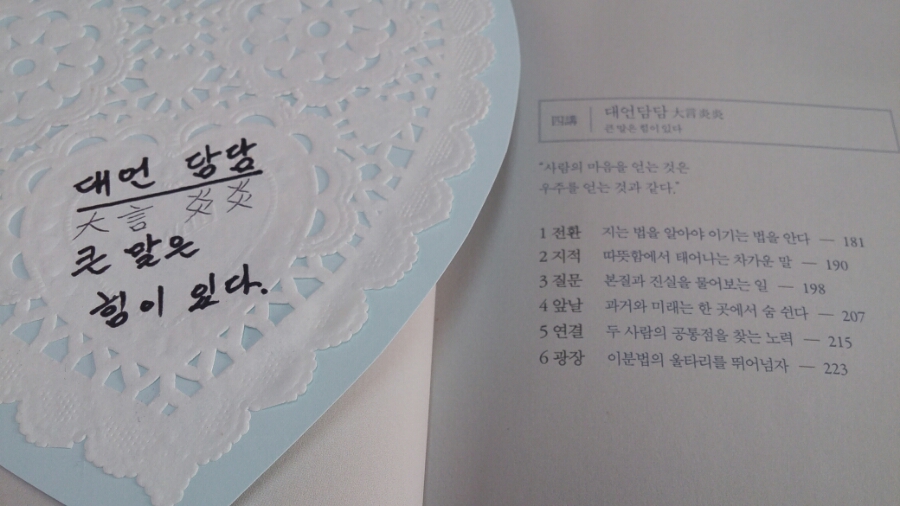 대언 담담
大言 炎炎
큰 말은
힘이 있다.
四講 대언담담 大言炎炎
큰 말은 힘이 있다
“사람의 마음을 얻는 것은
우주를 얻는 것과 같다.”
1 전환 지는 법을 알아야 이기는 법을 안다 — 181
2 지적 따뜻함에서 태어나는 차가운 말 — 190
3 질문 본질과 진실을 물어보는 일 — 198
4 앞날 과거와 미래는 한 곳에서 숨 쉰다 — 207
5 연결 두 사람의 공통점을 찾는 노력 — 215
6 광장 이분법의 울타리를 뛰어넘자 — 223